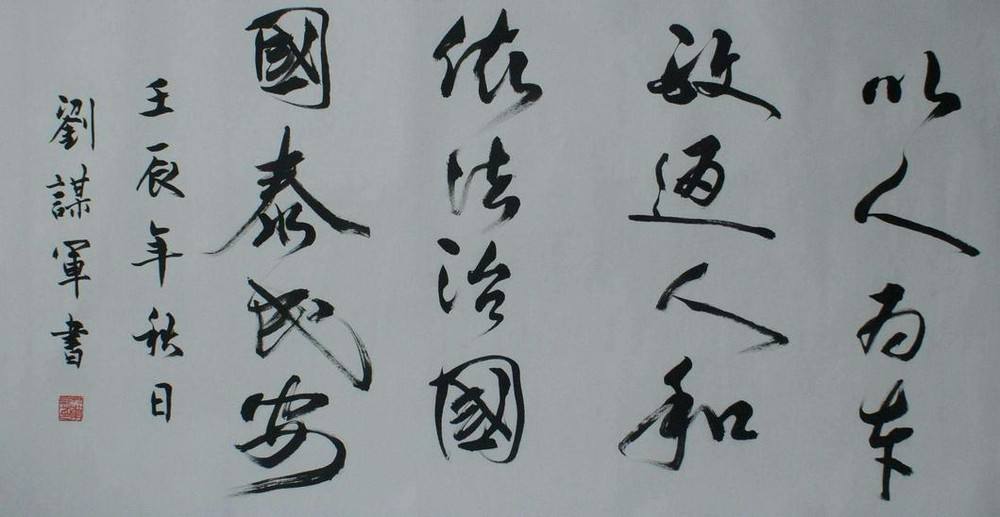 以人为本
政通人和
依法治國
國泰民安
壬辰年秋日
劉謀軍書